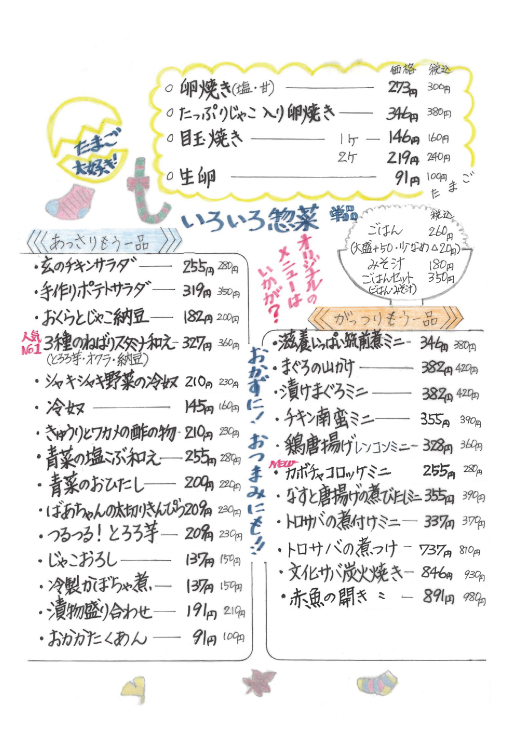 価格 税込
○ 卵焼き(塩・甘) 273円 300円
○ たっぷりじゃこ入り卵焼き 346円 380円
○ 目玉焼き 1ケ 146円 160円
2ケ 219円 240円
○ 生卵 91円 100円
たまご
たまご
大好き!
いろいろ惣菜 単品
税込
ごはん 260円
(大盛+50・少なめ△20円)
みそ汁 180円
ごはんセット 350円
(ごはん・みそ汁)
あっさりもう一品
・玄のチキンサラダ 255円 280円
・手作りポテトサラダ 319円 350円
・おくらとじゃこ納豆 182円 200円
人気No.1
・3種のねばりスタミナ和え 327円 360円
(とろろ芋・オクラ・納豆)
・シャキシャキ野菜の冷奴 210円 230円
・冷奴 145円 160円
・きゅうりとワカメの酢の物 210円 230円
・青菜の塩こぶ和え 255円 280円
・青菜のおひたし 200円 220円
・ばあちゃんの太切りきんぴら 209円 230円
・つるつる!とろろ芋 209円 230円
・じゃこおろし 137円 150円
・冷製かぼちゃ煮 137円 150円
・漬物盛り合わせ 191円 210円
・おかかたくあん 91円 100円
オリジナルの
メニューは
いかが?
おかずに!おつまみにも!!
がっつりもう一品
・滋養いっぱい筑前煮ミニ 346円 380円
・まぐろの山かけ 382円 420円
・漬けまぐろミニ 382円 420円
・チキン南蛮ミニ 355円 390円
・鶏唐揚げレンコンミニ 328円 360円
NEW
・カボチャコロッケミニ 255円 280円
・なすと唐揚げの煮びたしミニ 355円 390円
・トロサバの煮付けミニ 337円 370円
・トロサバの煮つけ 737円 810円
・文化サバ炭火焼き 846円 930円
・赤魚の開き 〃 891円 980円